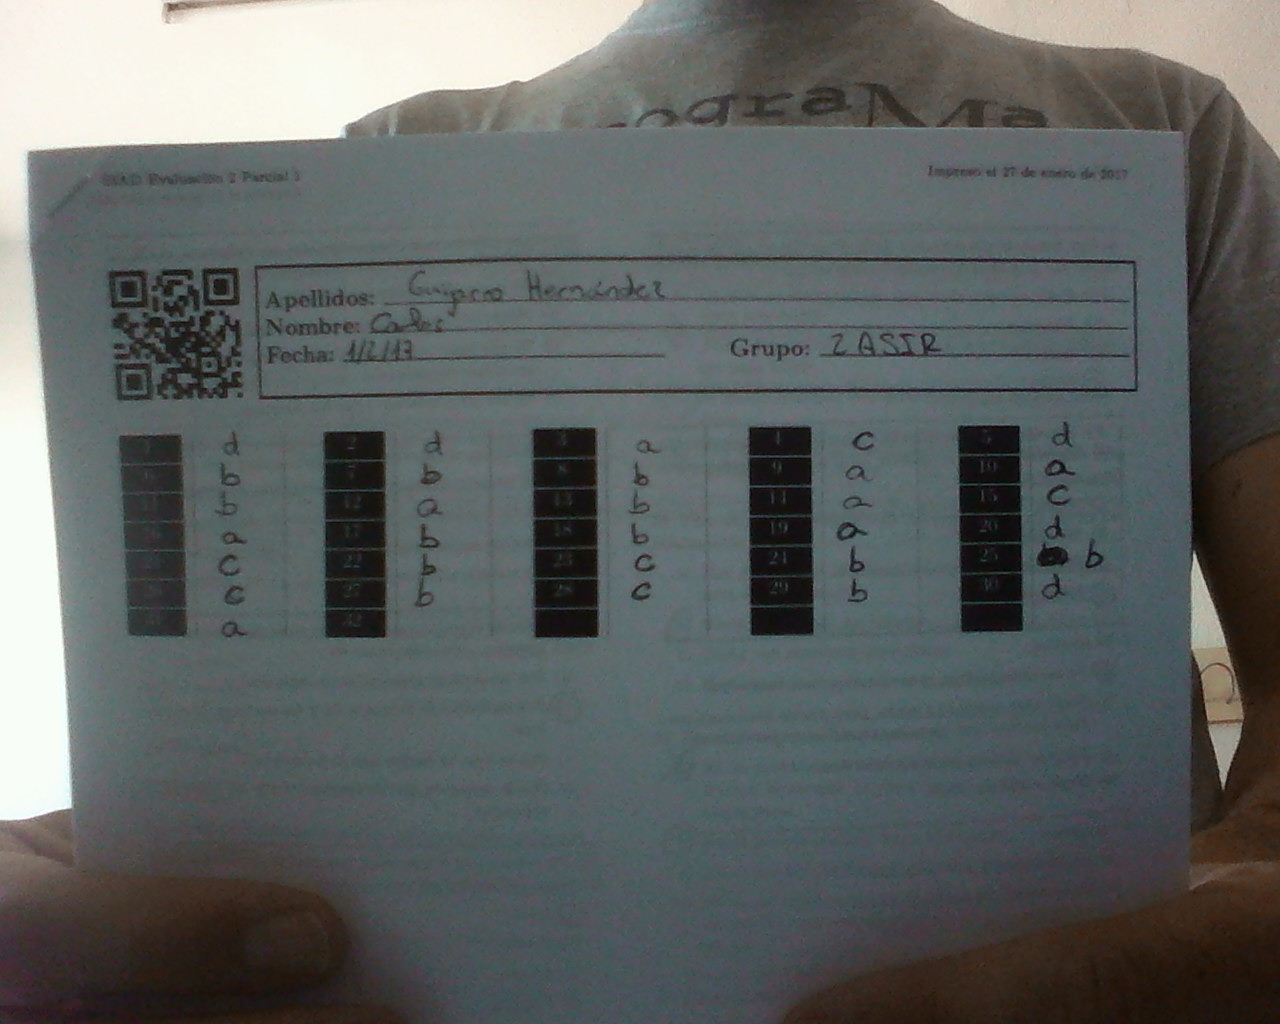 ograMa
Evaluación 2 Parcial 1
Impreso el 27 de enero de 2017
Apellidos: Hernández
Nombre: Carlos
Fecha: 1/2/17 Grupo: 2 ASIR
1 d 2 d 3 a 4 c 5 d
6 b 7 b 8 b 9 a 10 a
11 b 12 a 13 b 14 a 15 c
16 a 17 b 18 b 19 a 20 d
21 c 22 b 23 c 24 b 25 b
26 c 27 b 28 c 29 b 30 d
31 a 32